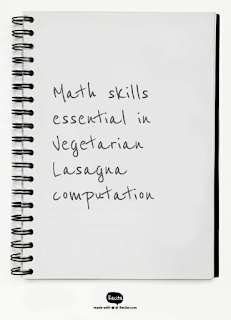 Math skills
essential in
Vegetarian
Lasagna
computation
Recite
made with ♥ @ Recite.com